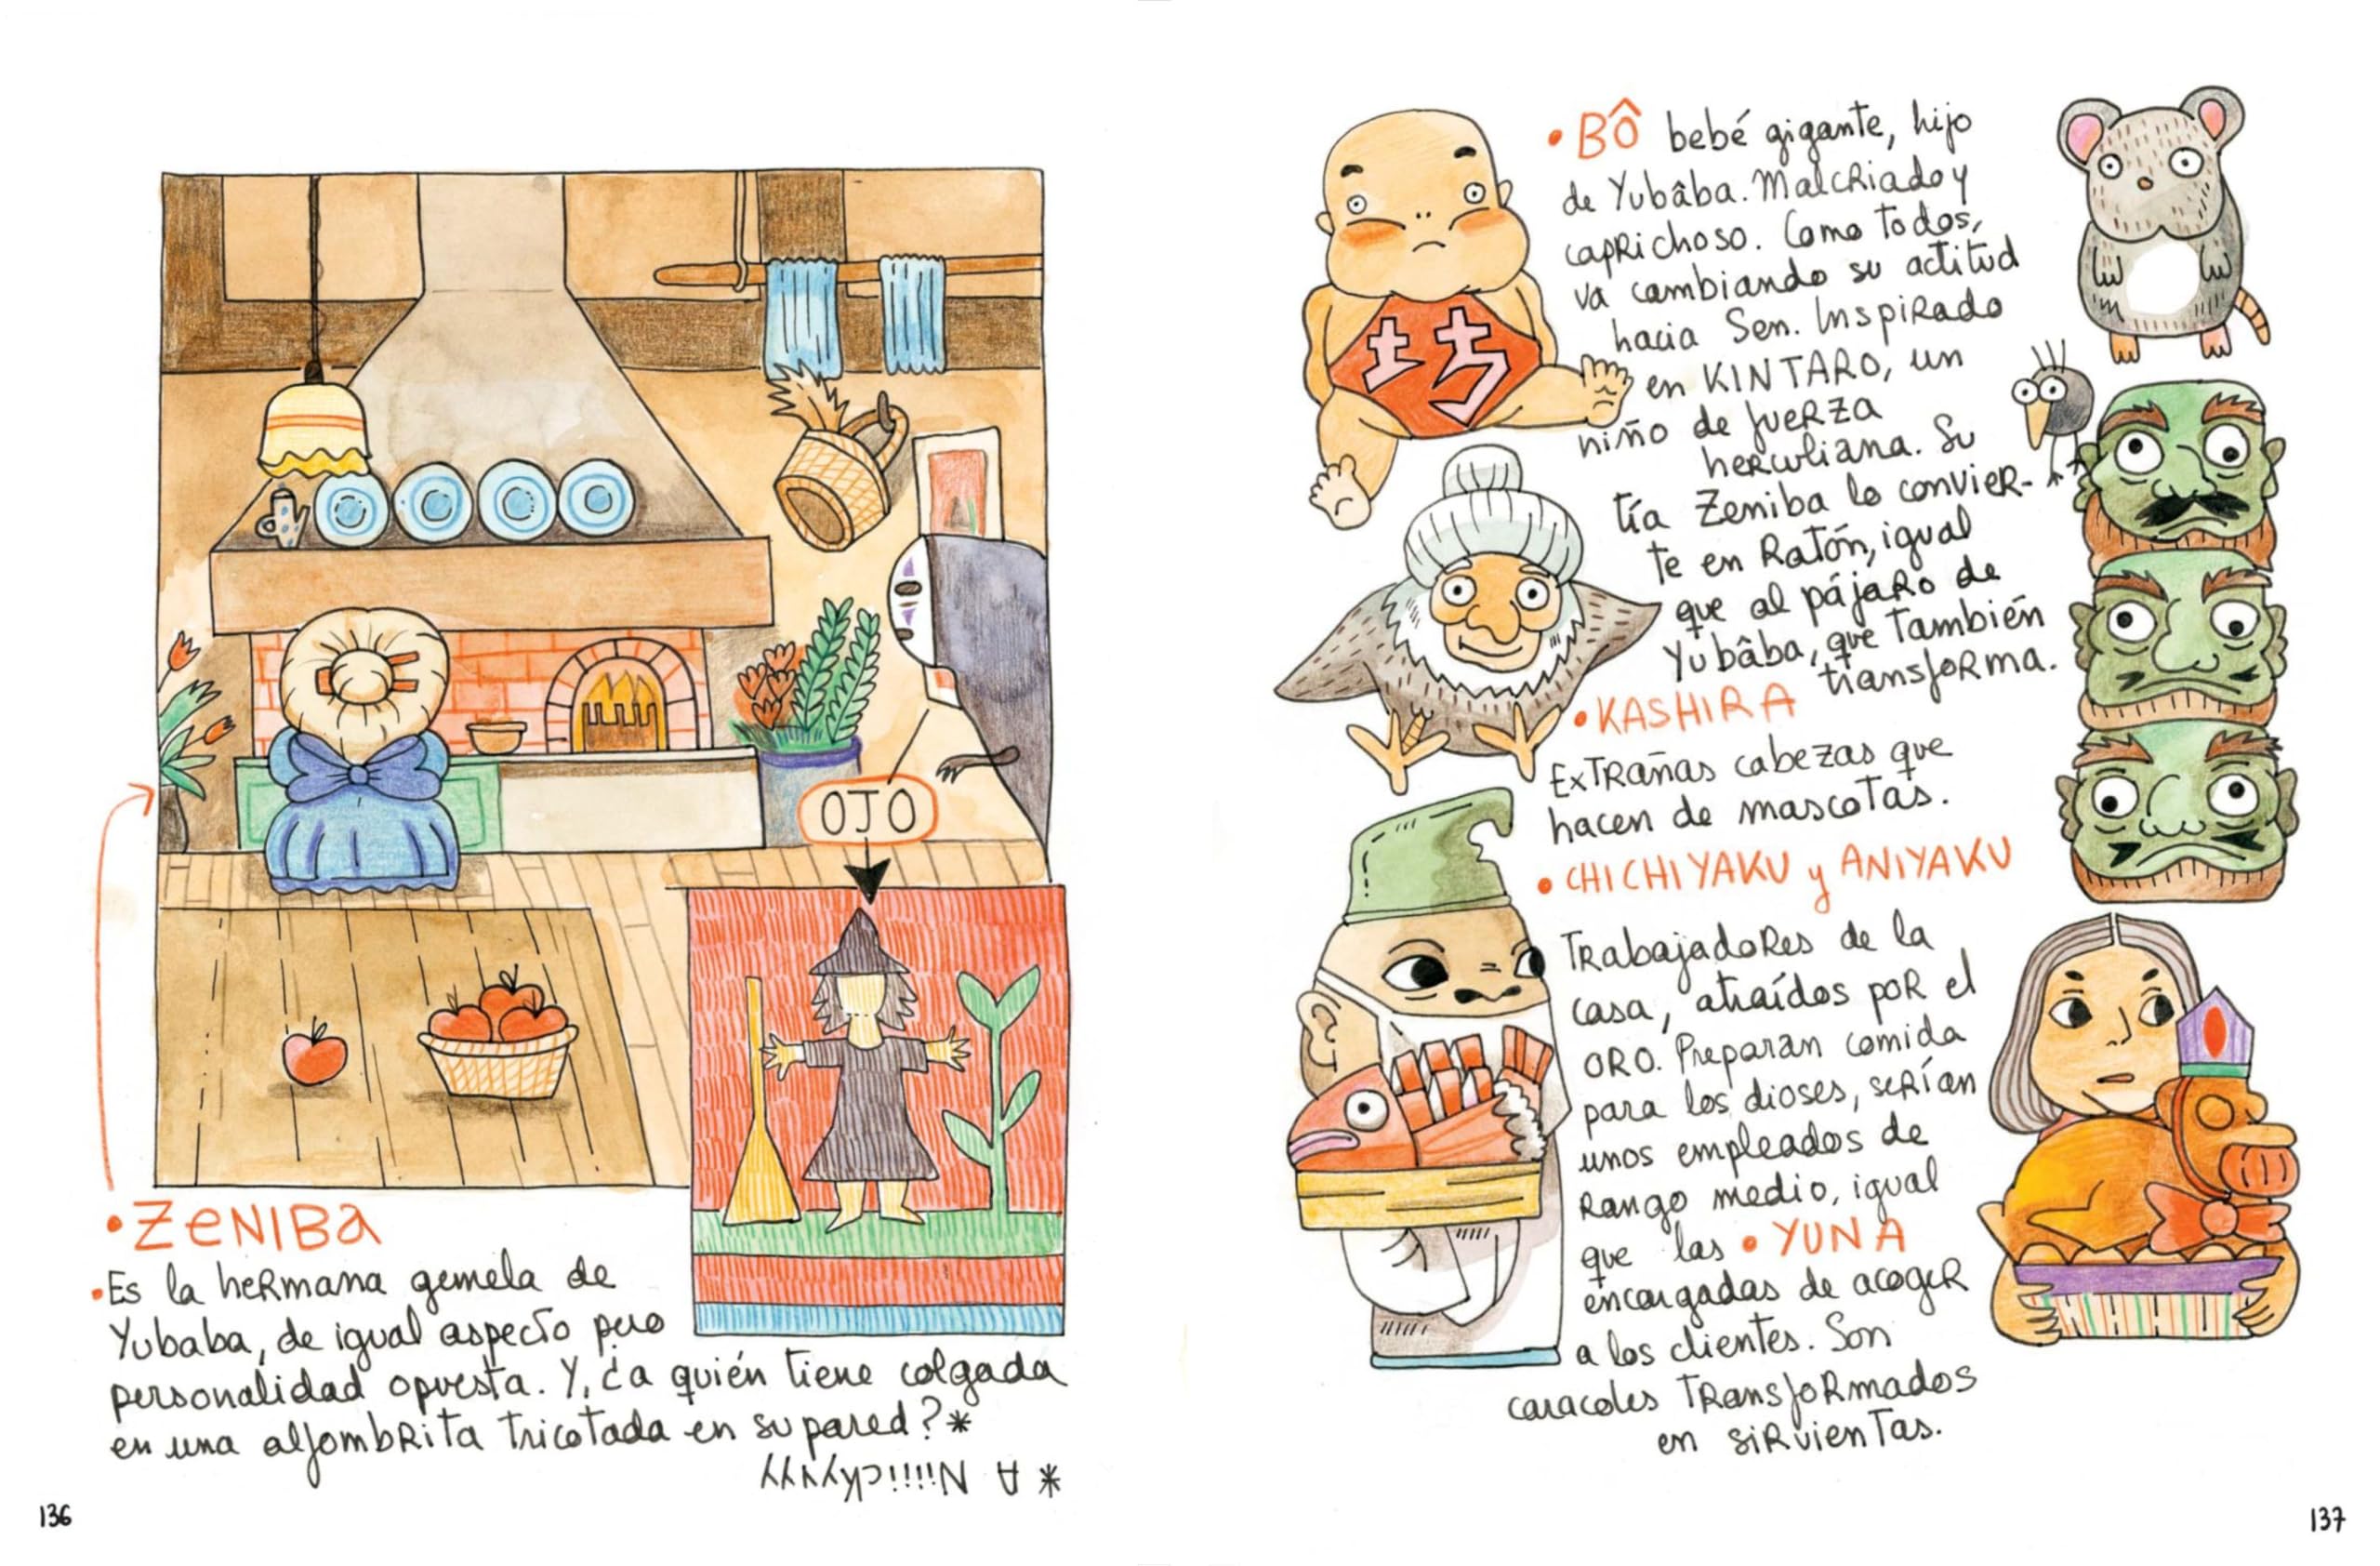 OJO
• ZENIBA
• Es la hermana gemela de
Yubaba, de igual aspecto pero
personalidad opuesta. Y, ¿a quién tiene colgada
en una alfombrita tricotada en su pared? *
* A NiiiiickYYYY
136
坊
• BÔ bebé gigante, hijo
de Yubâba. Malcriado y
caprichoso. Como todos,
va cambiando su actitud
hacia Sen. Inspirado
en KINTARO, un
niño de fuerza
herculiana. Su
tía Zeniba lo convier-
te en Ratón, igual
que al pájaro de
Yubâba, que también
transforma.
• KASHIRA
Extrañas cabezas que
hacen de mascotas.
• CHICHIYAKU y ANIYAKU
Trabajadores de la
casa, atraídos por el
ORO. Preparan comida
para los dioses, serían
unos empleados de
Rango medio, igual
que las • YUNA
encargadas de acoger
a los clientes. Son
caracoles transformados
en sirvientas.
137